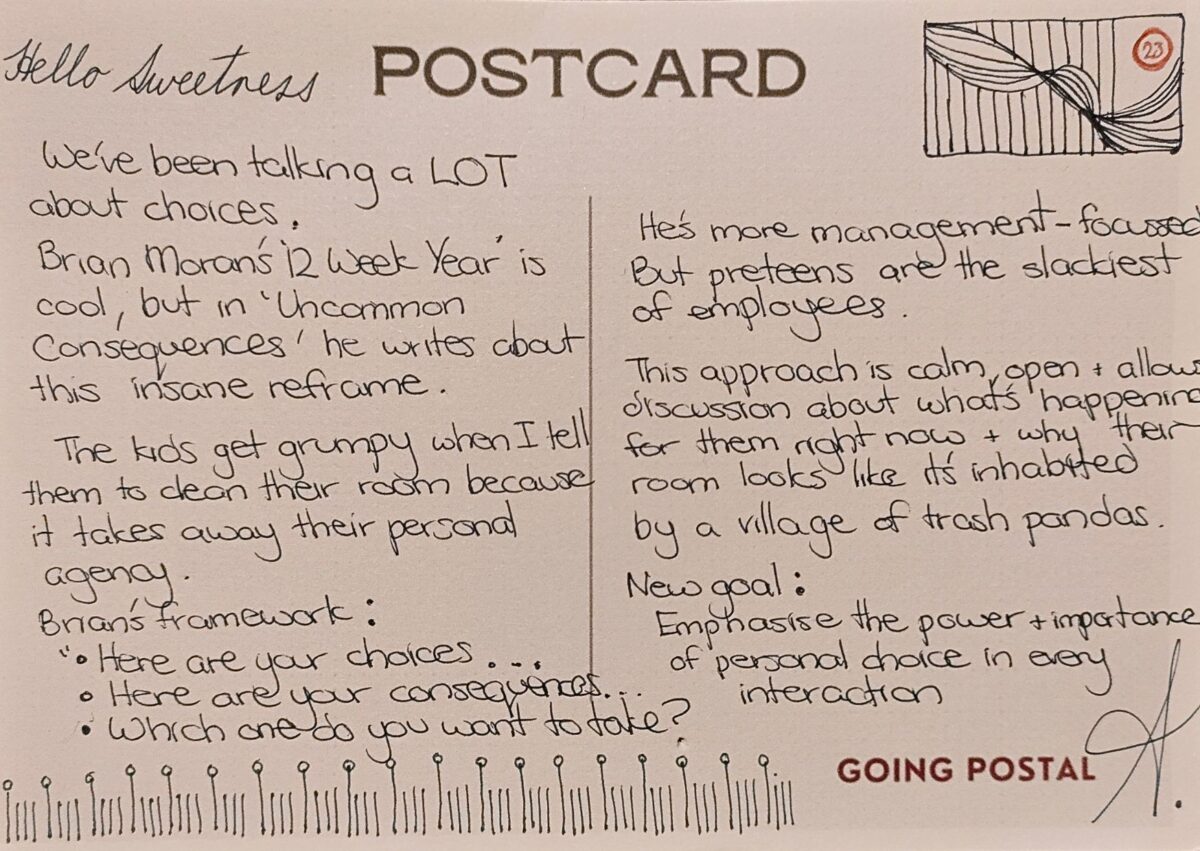 Hello Sweetness
POSTCARD
23
We've been talking a LOT
about choices.
Brian Moran's '12 Week Year' is
cool, but in 'Uncommon
Consequences' he writes about
this insane reframe.
The kids get grumpy when I tell
them to clean their room because
it takes away their personal
agency.
Brian's framework:
"• Here are your choices...
• Here are your consequences...
• Which one do you want to take?
He's more management-focussed
But preteens are the slackiest
of employees.
This approach is calm, open + allows
discussion about what's happening
for them right now + why their
room looks like it's inhabited
by a village of trash pandas.
New goal:
Emphasise the power + importance
of personal choice in every
interaction
GOING POSTAL
A.